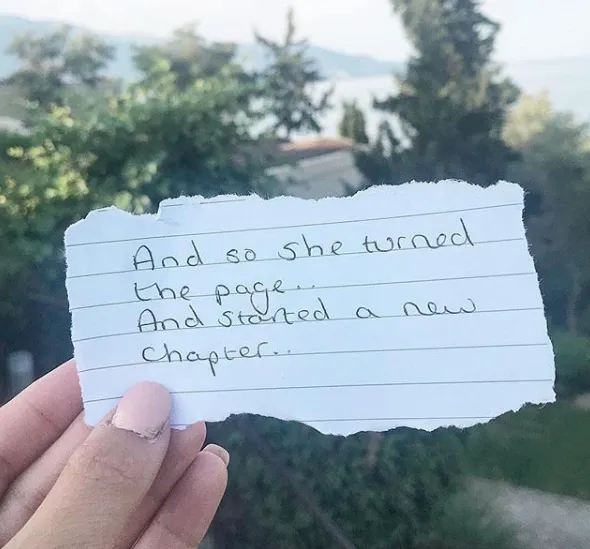 And so she turned
the page..
And started a new
chapter..